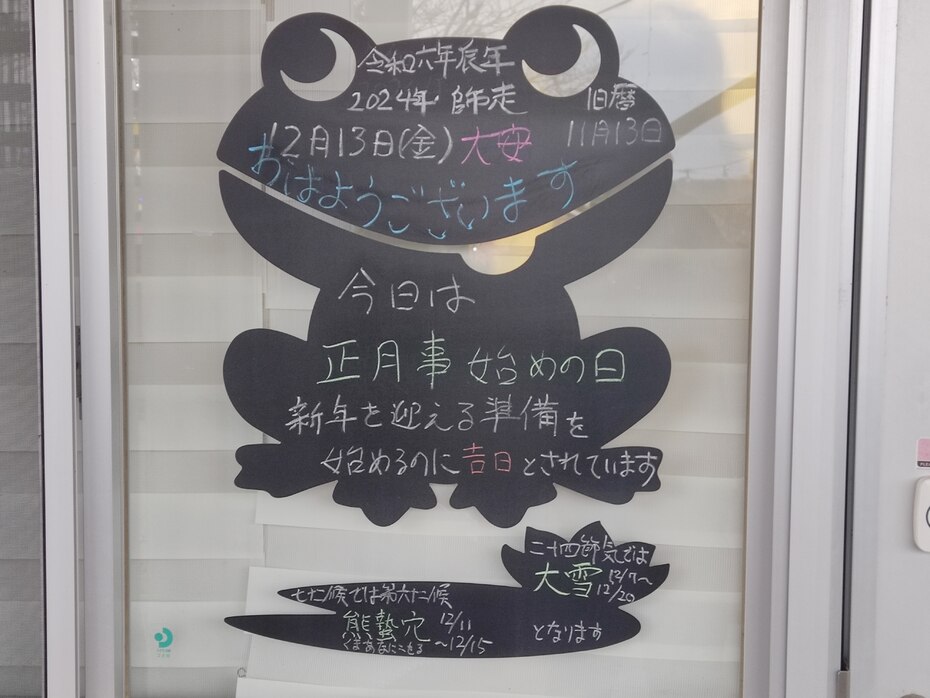 令和六年辰年
2024年 師走
旧暦
12月13日(金) 大安
11月13日
おはようございます
今日は
正月事始めの日
新年を迎える準備を
始めるのに吉日とされています
二十四節気では
大雪 12/7〜
12/20
となります
七十二候では第六十二候
熊蟄穴 12/11
くまあなにこもる 〜12/15